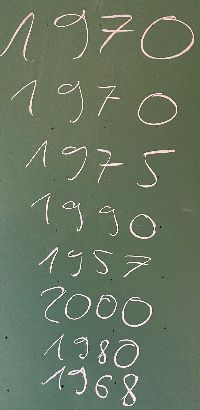 1970
1970
1975
1990
1957
2000
1980
1968